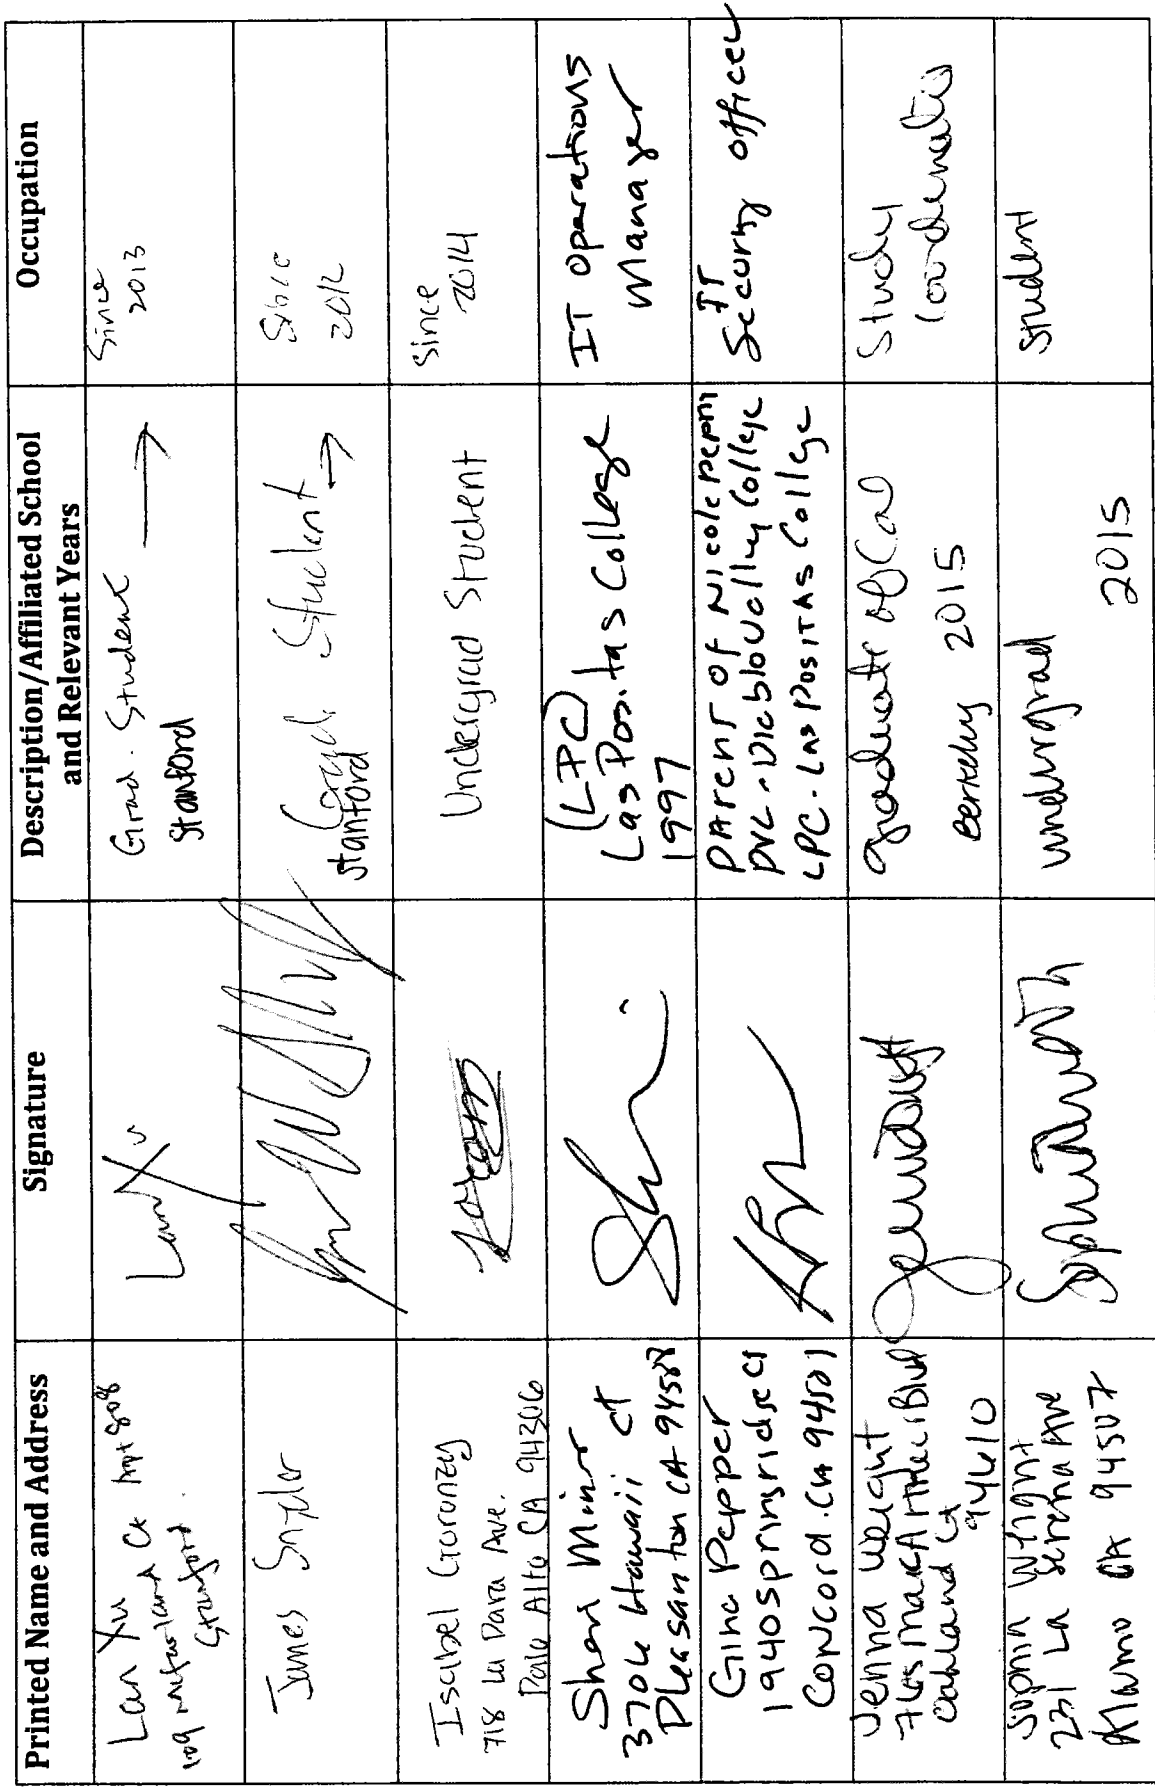 Printed Name and Address
Signature
Description/Affiliated School
and Relevant Years
Occupation
Lan Xu
109 McFarland Ct Apt 80
Stanford.
Lan Xu
Grad. Student →
Stanford
Since
2013
James Snyder
Grad. Student →
Stanford
Since
2012
Isabel
718 La Para Ave.
Palo Alto CA 94306
Undergrad Student
Since
2014
Shari Minor
3706 Hawaii Ct
Pleasanton CA 94588
(LPC)
Las Positas College
1997
IT operations
Manager
Gina Pepper
1940 Springridse Ct
Concord. CA 94521
Parent of Nicole
DVC - Diablo Valley College
LPC - Las Positas College
IT
Security Officer
Jenna Weight
Blvd
Oakland Ca
94610
graduate of Cal
Berkeley 2015
Study
Coordinator
Sophia Wright
231 La Serena Ave
Alamo CA 94507
undergrad
2015
Student